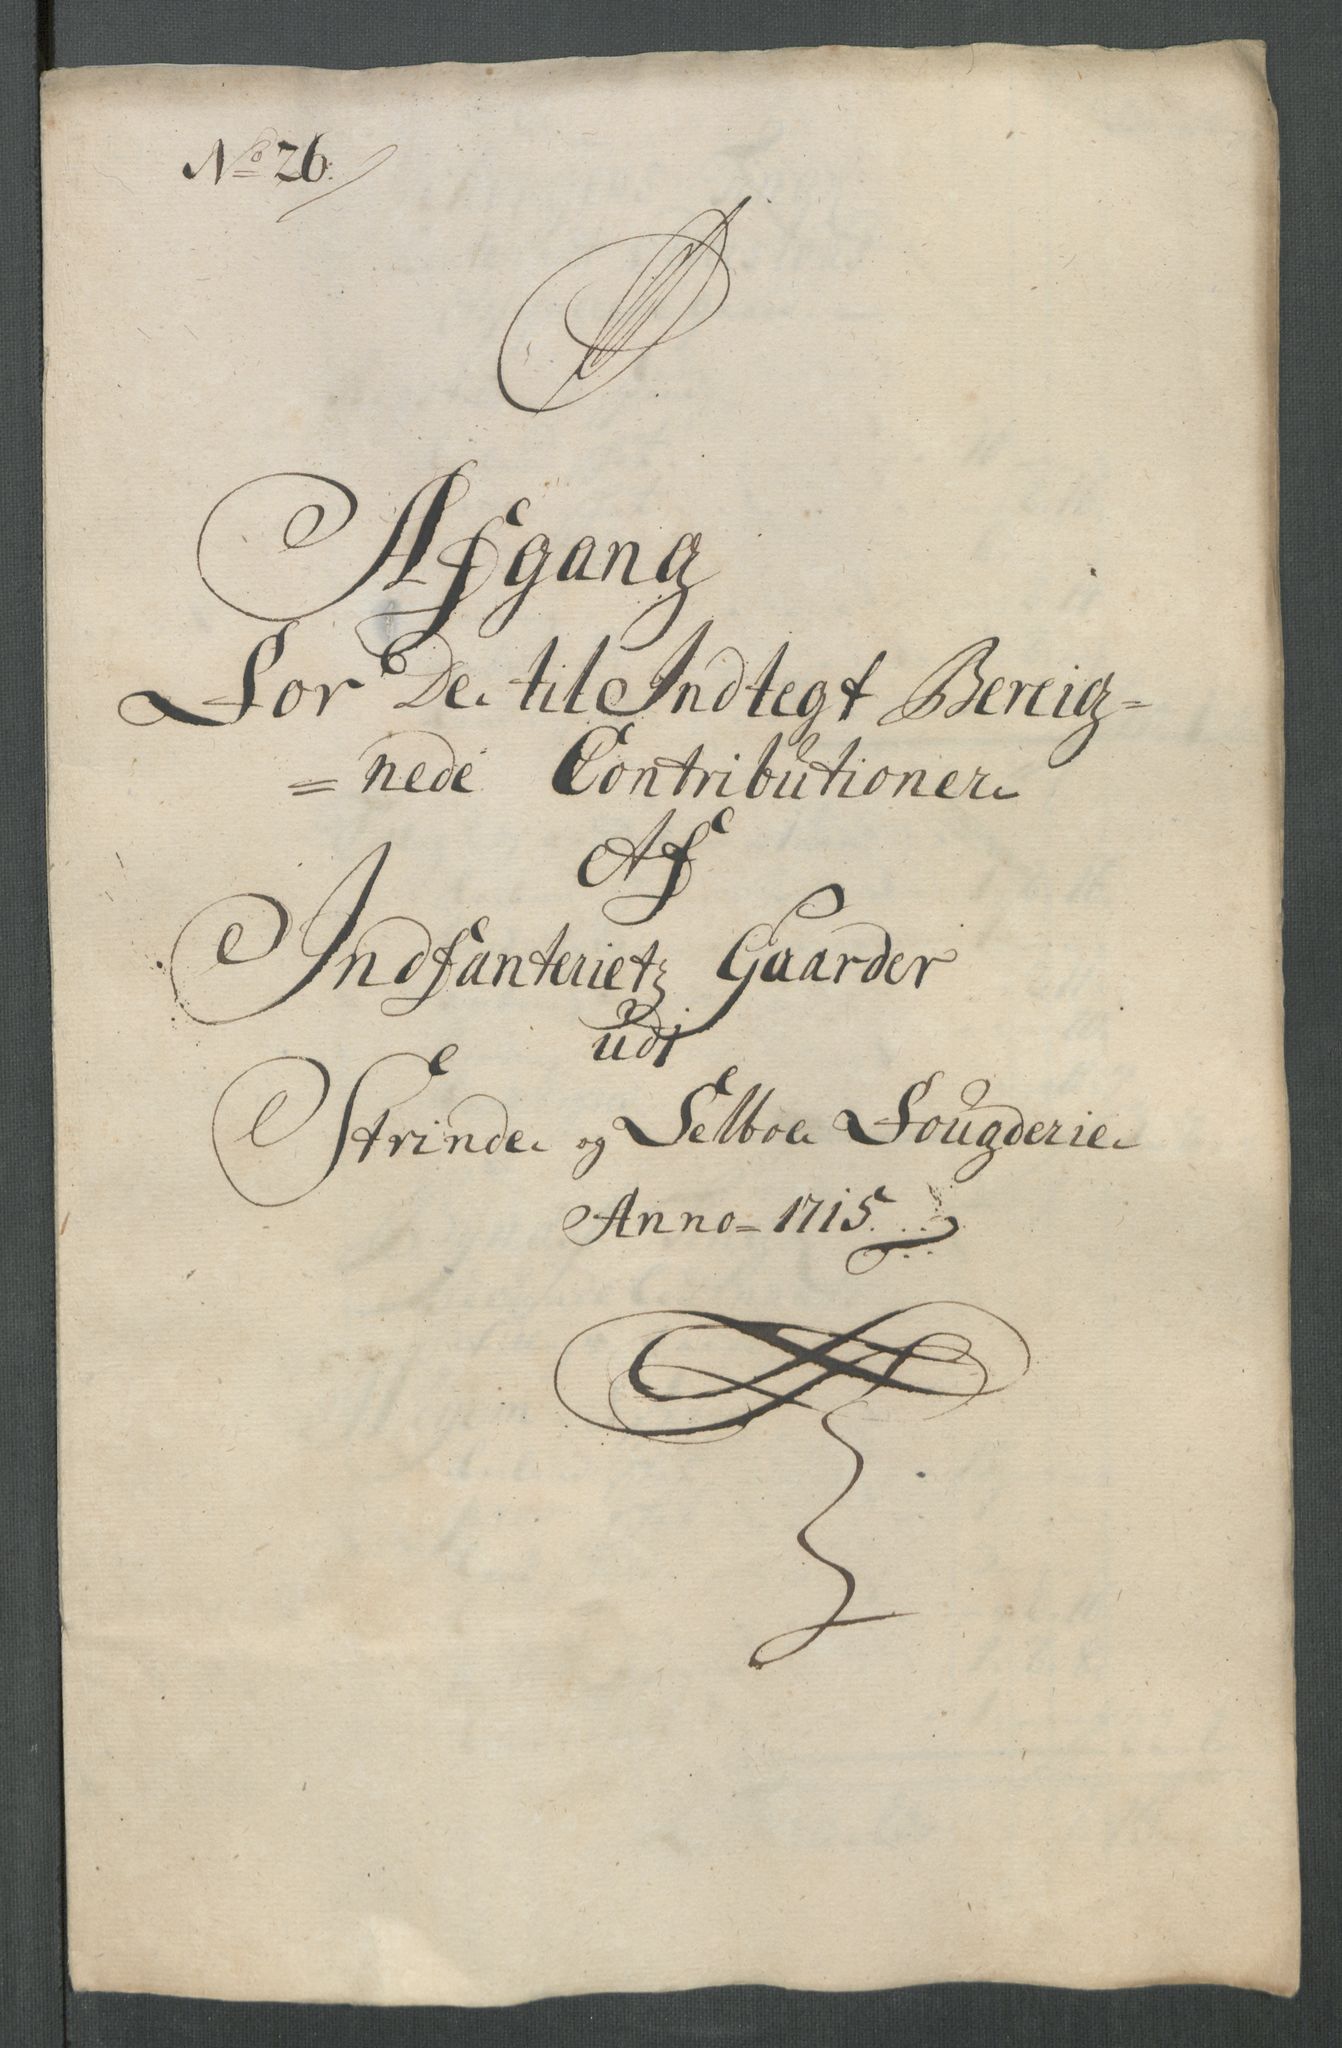 No 26.
Afgang
For De til Indtegt Bereig=
=nede Contributioner
Af
Indfanterietz Gaarder
udi
Strinde og Selboe Fougderie
Anno= 1715.